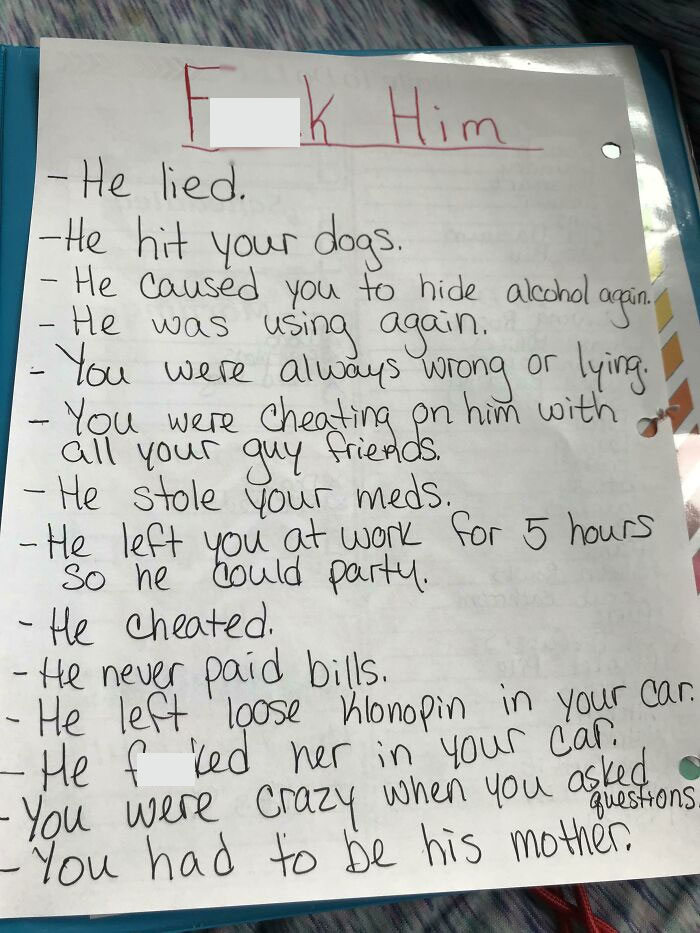 F k Him
- He lied.
- He hit your dogs.
- He caused you to hide alcohol again.
- He was using again.
- You were always wrong or lying.
- You were cheating on him with
all your guy friends.
- He stole your meds.
- He left you at work for 5 hours
so he could party.
- He cheated.
- He never paid bills.
- He left loose Klonopin in your car.
- He f ked her in your car.
- You were crazy when you asked
questions.
- You had to be his mother.